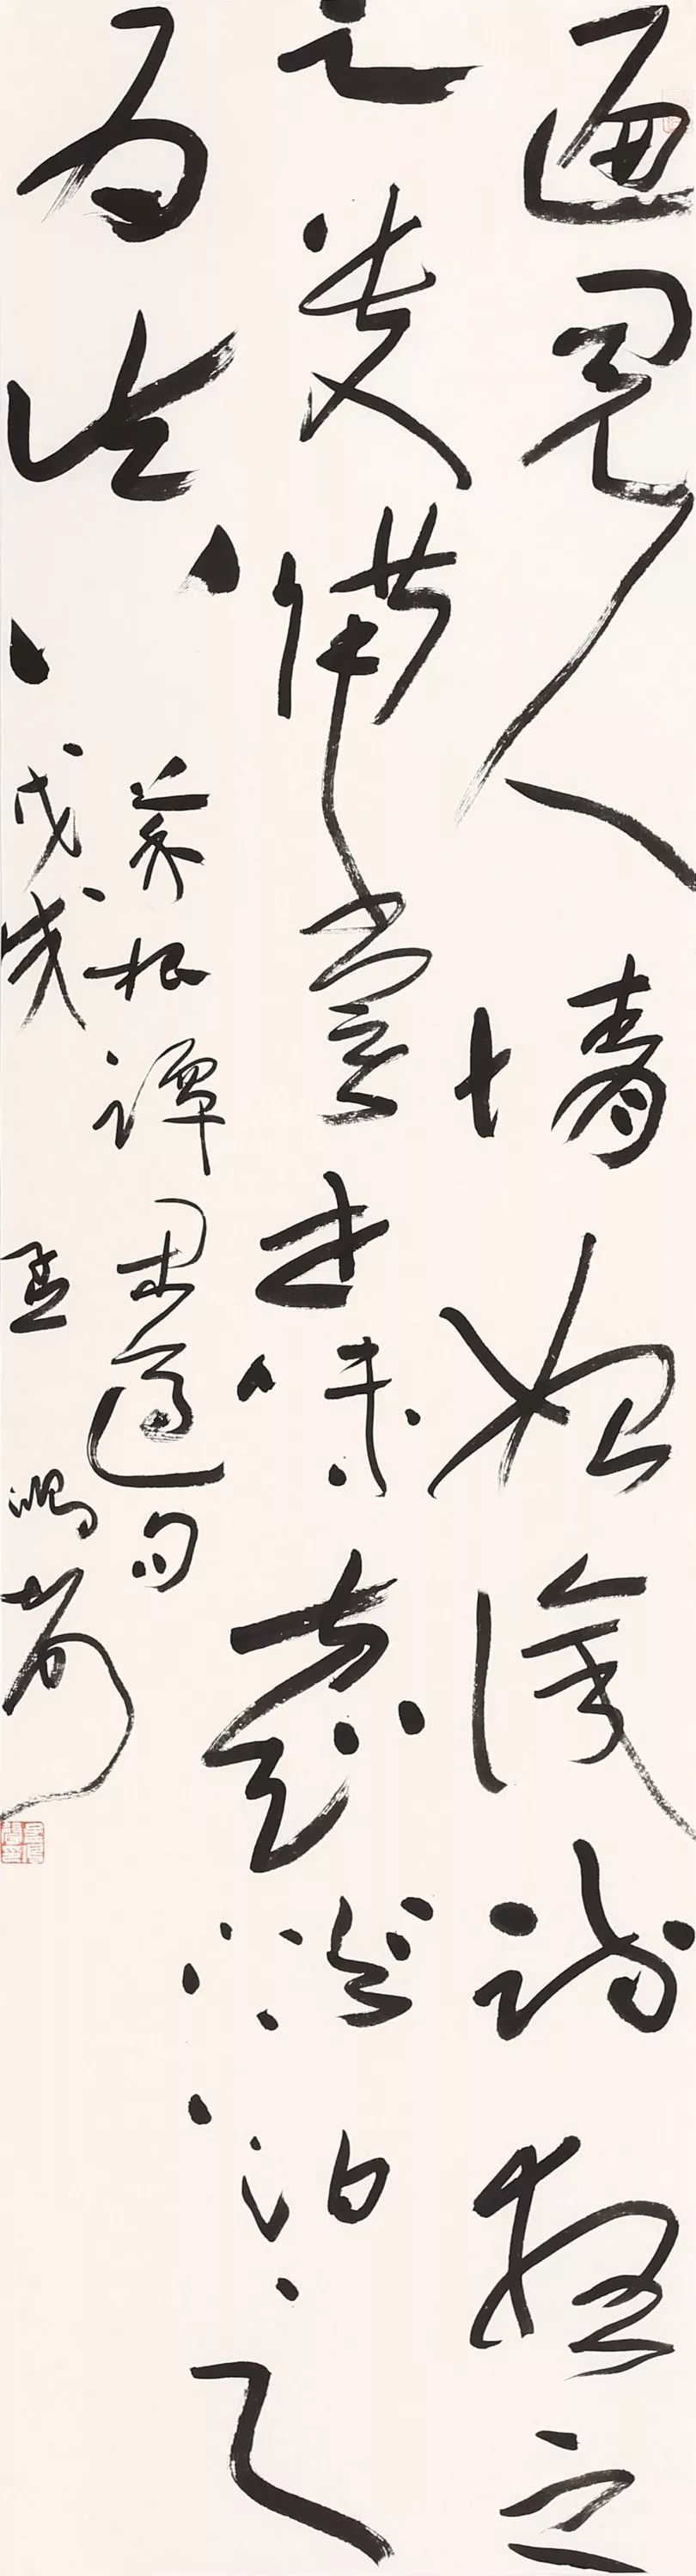 遍閱人情始識疏狂之
足貴備嘗世味方知淡泊之
為真
菜根譚閑適句
戊戌 孟鴻聲